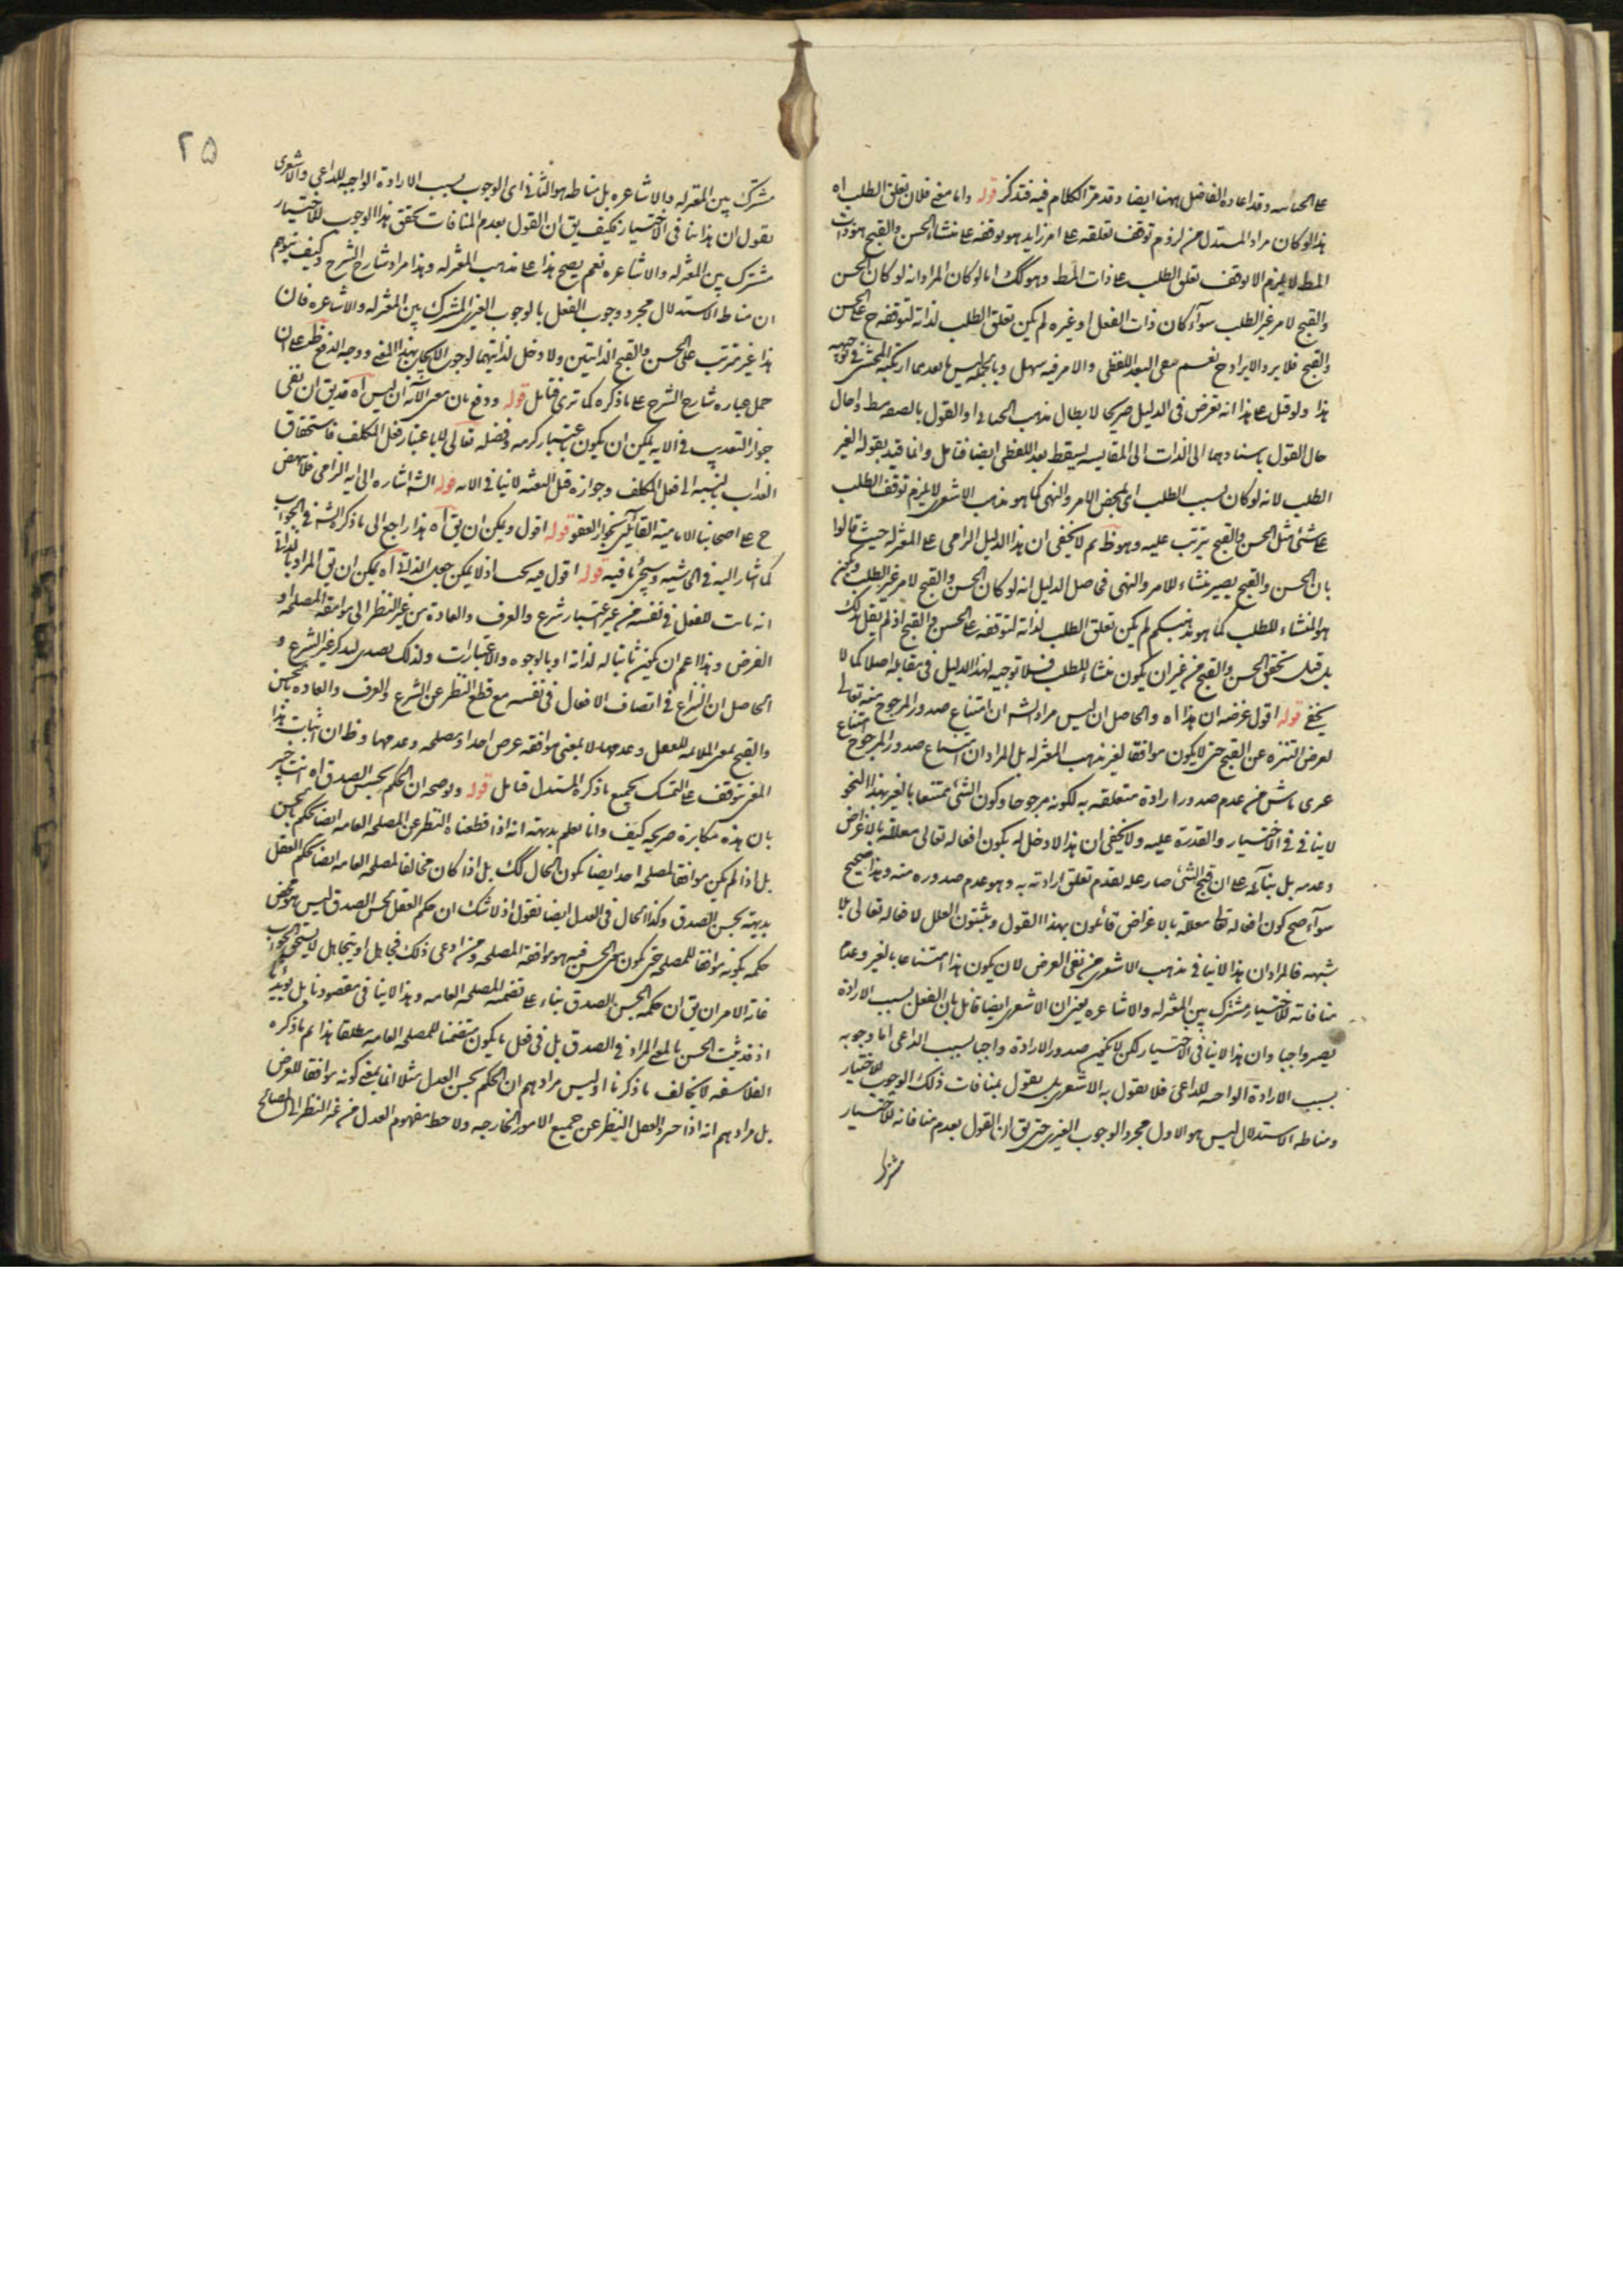 على الجبائيه وقد اعاده الفاضل ههنا ايضا وقد مر الكلام فيه فتذكر قوله واما منع فلان تعلق الطلب اه
هذا لو كان مراد المستدل من لزوم توقف تعلقه على امر زايد هو توقفه على منشاء الحسن والقبح هو ذات
المط لا يلزم الا توقف تعلق الطلب على ذات المط وهو كك اما لو كان المراد انه لو كان الحسن
والقبح لامر غير الطلب سواء كان ذات الفعل او غيره لم يكن تعلق الطلب لذاته لتوقفه ح على الحسن
والقبح فلا يرد الايراد ح نعم بقى البعد اللفظى والامر فيه سهل وبالجملة ليس بابعد مما ارتكبه المحشى فى توجيهه
هذا ولو قيل على هذا انه تعرض فى الدليل صريحا لابطال مذهب الجبائى او القول بالصفه سط واحال
حال القول باسنادهما الى الذات الى المقايسه ليسقط بعد اللفظى ايضا فتامل وانما قيد بقوله الغير
الطلب لانه لو كان بسبب الطلب اى بمحض الامر والنهى كما هو مذهب الاشعرى لا يلزم توقف الطلب
على شئ مثل الحسن والقبح يترتب عليه وهو ظ ثم لا يخفى ان هذا الدليل الزامى على المعتزله حيث قالوا
بان الحسن والقبح يصير منشاء للامر والنهى فحاصل الدليل انه لو كان الحسن والقبح لامر غير الطلب ويكون
هو المنشاء للطلب كما هو مذهبكم لم يكن تعلق الطلب لذاته لتوقفه على الحسن والقبح اذ لم يقل بذلك
بل قيل بتحقق الحسن والقبح من غير ان يكون منشاء للطلب فلا توجيه لهذا الدليل فى مقابله اصلا كما لا
يخفى قوله اقول غرضه ان هذا اه والحاصل ان ليس مراد الش ان امتناع صدور المرجوح منه تعالى
لعرض التنزه عن القبح حتى لا يكون موافقا لغير مذهب المعتزله بل المراد ان امتناع صدور المرجوح امتناع
عرى ناش من عدم صدور ارادة متعلقه به لكونه مرجوحا وكون الشئ ممتنعا بالغير بهذا النحو
لا ينافى فى الاختيار والقدرة عليه ولا يخفى ان هذا لا دخل له بكون افعاله تعالى معللة بالاغراض
وعدمه بل بناؤه على ان قبح الشئ صار عله لعدم تعلق ارادته به وهو عدم صدوره منه وهذا صحيح
سواء صح كون افعاله تعالى معللة بالاغراض قائلون بهذا القول ويثبتون العلل لافعاله تعالى بلا
شبهه فالمراد ان هذا لا ينافى مذهب الاشعرى من نفى العرض لان يكون هذا امتناعا بالغير وعدم
منافاته للاختيار مشترك بين المعتزله والاشاعره يعنى ان الاشعرى ايضا قائل بان الفعل بسبب الارادة
يصير واجبا وان هذا لا ينافى الاختيار لكن لا يخفى صدور الارادة واجبا بسبب الداعى اما وجوبه
بسبب الارادة الواجبه للداعى فلا يقول به الاشعرى بل يقول بمنافات ذلك الوجوب للاختيار
ومناط الاستدلال ليس هو الاول مجرد الوجوب الغيرى حتى يق ان القول بعدم منافاته للاختيار
مشترك
٢٥
مشترك بين المعتزله والاشاعره بل مناطه هو الثانى اى الوجوب بسبب الارادة الواجبه للداعى والاشعرى
يقول ان هذا ينافى الاختيار فكيف يق ان القول بعدم المنافات بتحقق هذا الوجوب للاختيار
مشترك بين المعتزله والاشاعره نعم يصح هذا على مذهب المعتزله وهذا مراد شارح الشرح وكيف يتوهم
ان مناط الاستدلال مجرد وجوب الفعل بالوجوب الغيرى المشترك بين المعتزله والاشاعره فان
هذا غير مترتب على الحسن والقبح الذاتيين ولا دخل لذاتيتهما لوجوب الايجاب بهذا المعنى ووجه الدفع ظهر على ان
حمل عباره شارح الشرح على ما ذكره كما ترى فتامل قوله ودفع بان معنى الآية ان ليس اه قد يق ان نفى
جواز التعذيب فى الايه يمكن ان يكون باعتبار كرمه وفضله تعالى لا باعتبار فعل المكلف فاستحقاق
العذاب بالنسبه الى فعل المكلف وجوازه قبل البعثه لا ينافى الايه قوله الش اشاره الى ايه الزامى فلا ينهض
ح على اصحابنا الاماميه القائلين بجواز العفو قوله اقول ويمكن ان يق اه هذا راجع الى ما ذكره الش فى الجواب
كما اشار اليه فى الحاشيه وسيجئ ما فيه قوله اقول فيه بحث اذ لا يمكن جعل الذاتى اه يمكن ان يق المراد بالذاتى
انه ثابت للفعل فى نفسه من غير اعتبار شرع والعرف والعادة من غير النظر الى موافقه المصلحه او
الغرض وهذا اعم ان يكون ثابتا له لذاته او بالوجوه والاعتبارات ولذلك تصدى لذكر غير الشرع و
الحاصل ان النزاع فى اتصاف الافعال فى نفسه مع قطع النظر عن الشرع والعرف والعاده بالحسن
والقبح بمعنى الملائمه للعقل وعدمها لا بمعنى موافقه عرض احد او مصلحه وعدمها وظ ان اثبات هذا
المعنى يتوقف على التمسك بجميع ما ذكره المستدل فتامل قوله ويوضحه ان الحكم بحسن الصدق اه انت خبير
بان هذه مكابرة صريحه كيف وانا نعلم بديهة انه اذا قطعنا النظر عن المصلحه العامه ايضا نحكم بالحسن
بل اذا لم يكن موافقا لمصلحه احد ايضا يكون الحال كك بل اذا كان مخالفا لمصلحه العامه ايضا يحكم العقل
بديهة بحسن الصدق وكذا الحال فى العدل ايضا نقول اذ لا شك ان حكم العقل بحسن الصدق ليس هو محض
حكمه بكونه موافقا للمصلحه حتى يكون معنى الحسن فيه هو موافقه المصلحه ومن ادعى ذلك فجاهل او يتجاهل لا يستحق الجواب
غاية الامر ان يق ان حكمه بحسن الصدق بناء على تضمنه المصلحه العامه وهذا لا ينافى مقصودنا بل يؤيده
اذ قد ثبت الحسن بالمعنى المراد فى الصدق بل فى فعل ما يكون متضمنا للمصلحه العامه مطلقا هذا ثم ما ذكره
الفلاسفه لا يخالف ما ذكرنا اذ ليس مرادهم ان الحكم بحسن العدل مثلا انما يعنى كونه موافقا للعرض
بل مرادهم انه اذا جرد العقل النظر عن جميع الامور الخارجيه ولاحظ مفهوم العدل من غير النظر الى المصالح